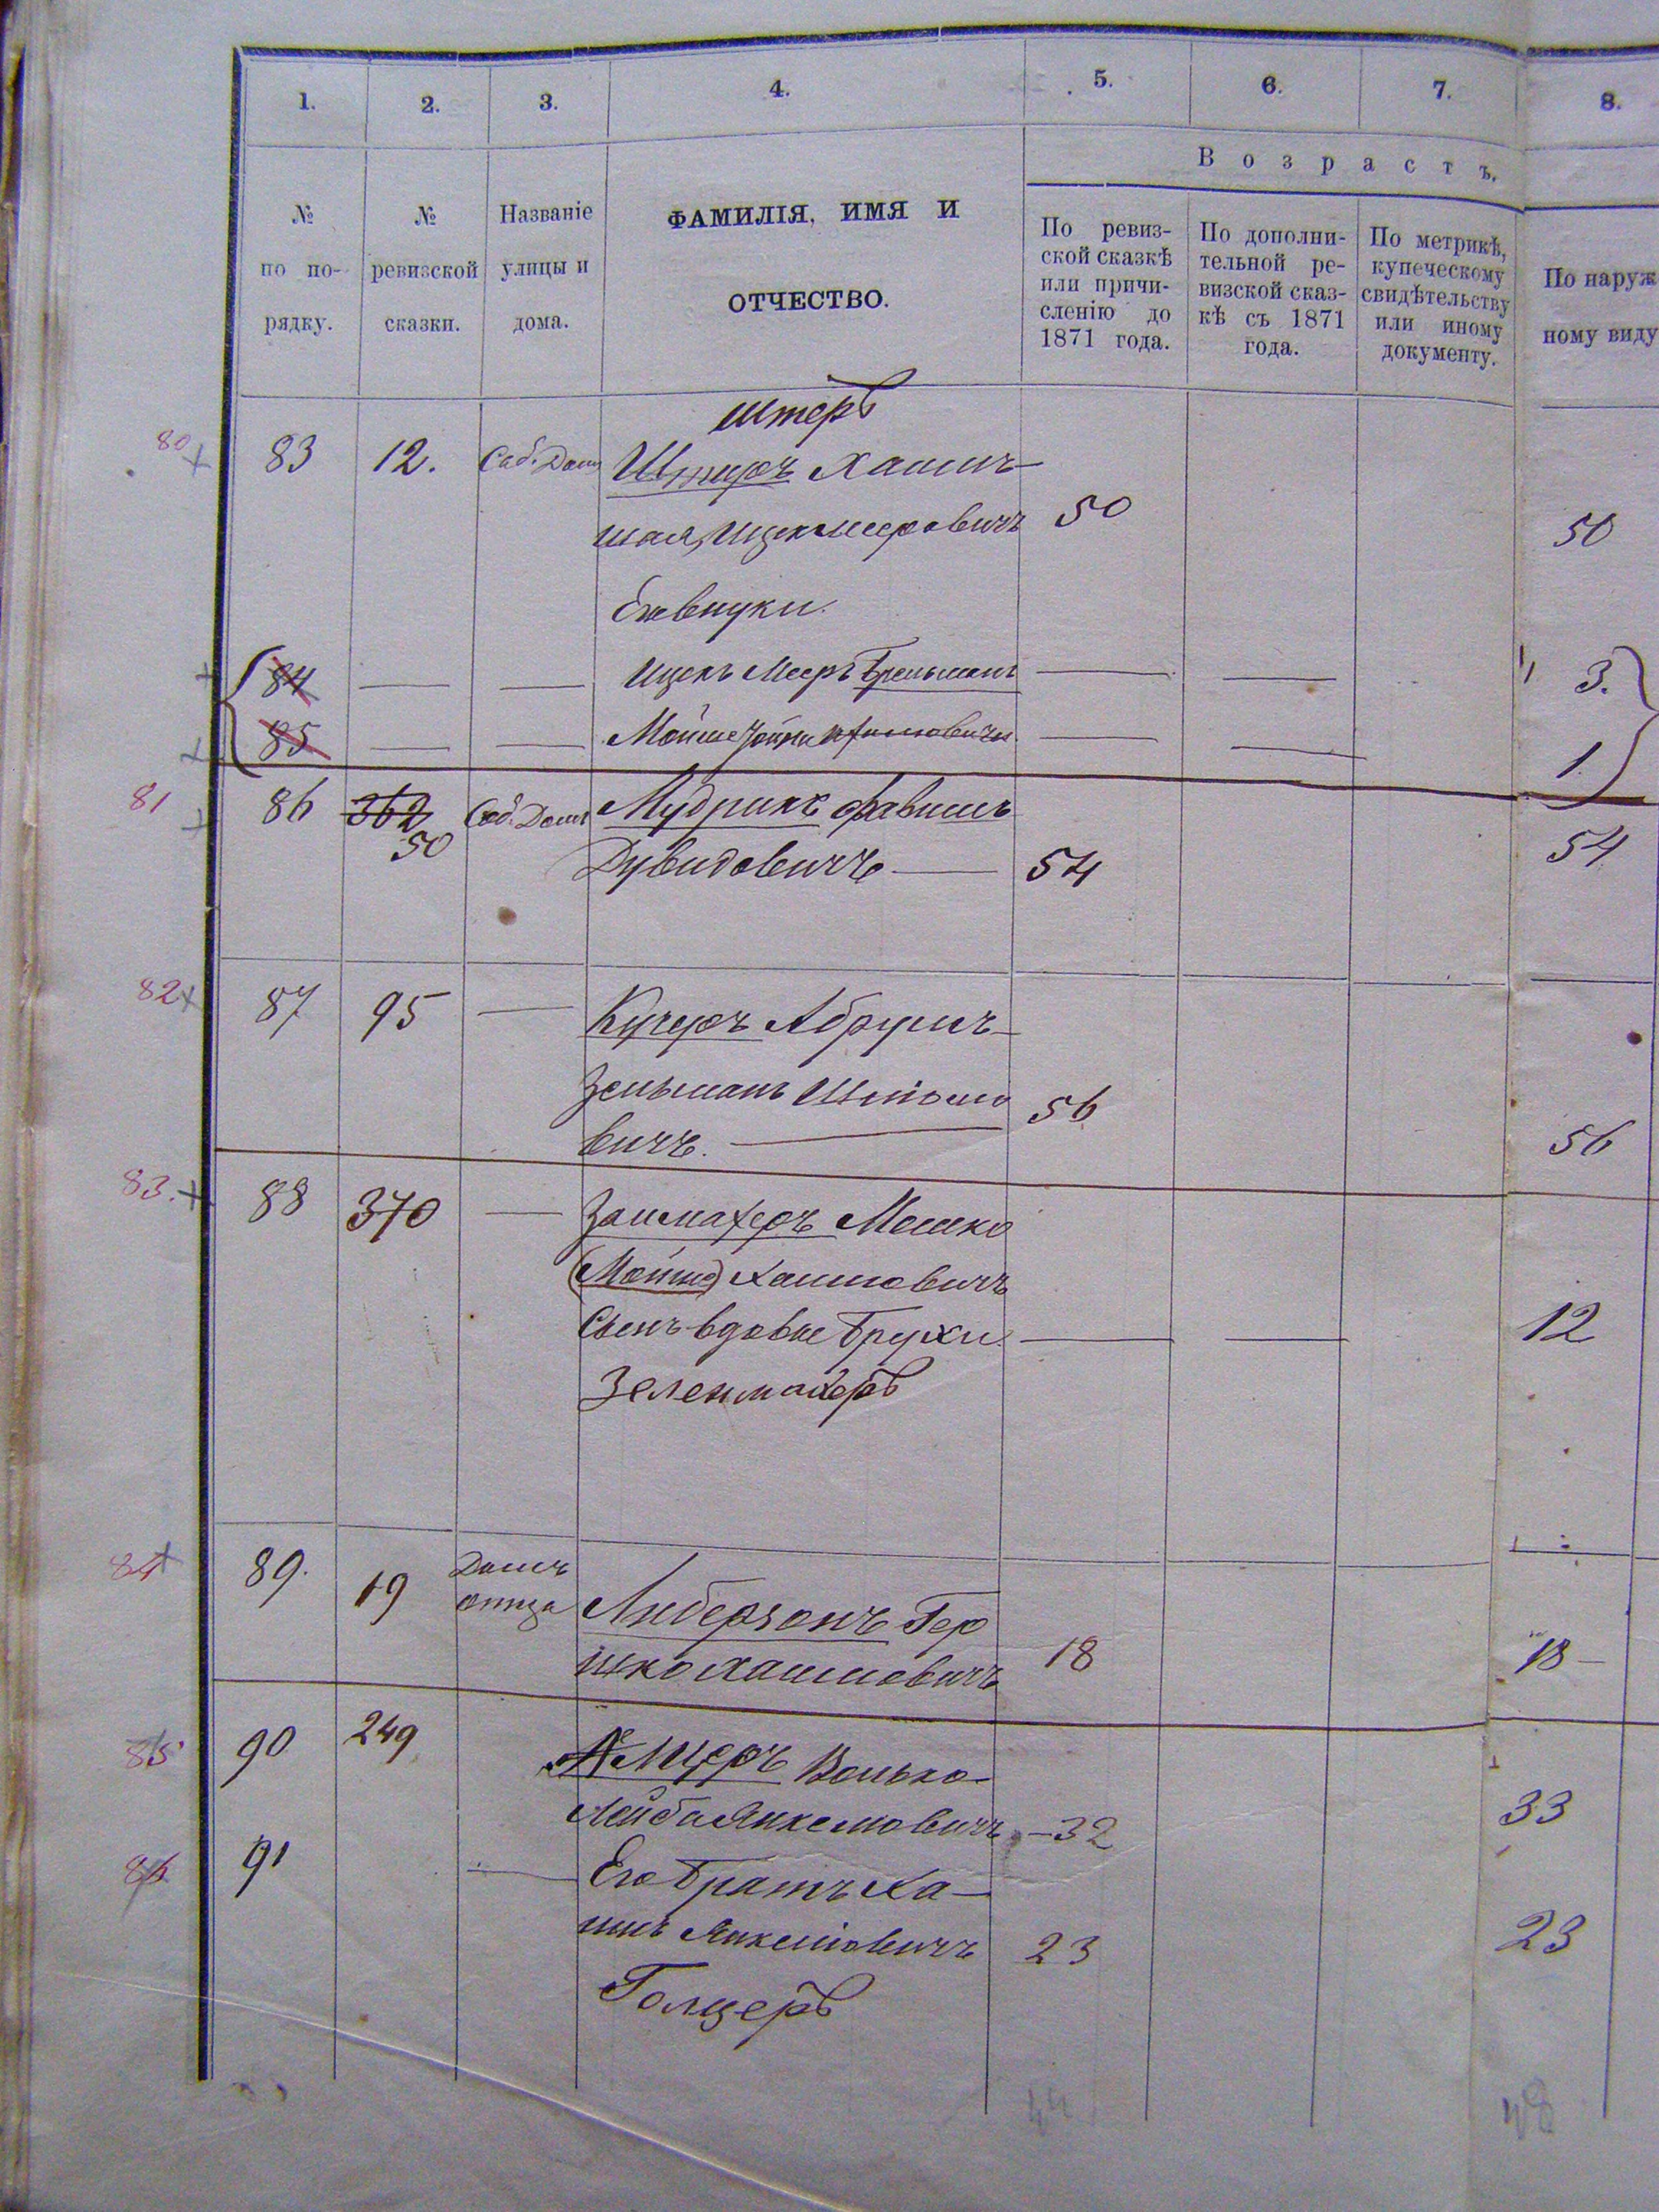 1. 2. 3. 4. 5. 6. 7. 8.
Возрастъ.
№ по по-рядку.
№ ревизской сказки.
Названіе улицы и дома.
ФАМИЛІЯ, ИМЯ И
ОТЧЕСТВО.
По ревиз-
ской сказкѣ
или причи-
сленію до
1871 года.
По дополни-
тельной ре-
визской сказ-
кѣ съ 1871
года.
По метрикѣ,
купеческому
свидѣтельству
или иному
документу.
По наруж
ному виду
штеръ
80 83 12. Соб. Домъ Штеръ Хаимъ-
шая Ицекмееровичъ 50 50
Его внуки.
84 Ицекъ Мееръ 3.
85 Мойше 1
81 86 362 Соб. Домъ Мудрикъ
50
Дувидовичъ 54 54
82 87 95 Кучеръ Абрумъ-
Зельманъ Шліомо 56 56
вичъ.
83. 88 370 Мошко
(Мойше) Хаимовичъ
Сынъ вдовы Брухи 12
Зеленмахеръ
84 89. 19 Домъ
отца Либерзонъ Гер
шко Хаимовичъ 18 18
85 90 249 Волько-
Лейба Янкелевичъ 32 33
86 91 Его братъ Ха-
имъ Янкелевичъ 23 23
Голцеръ